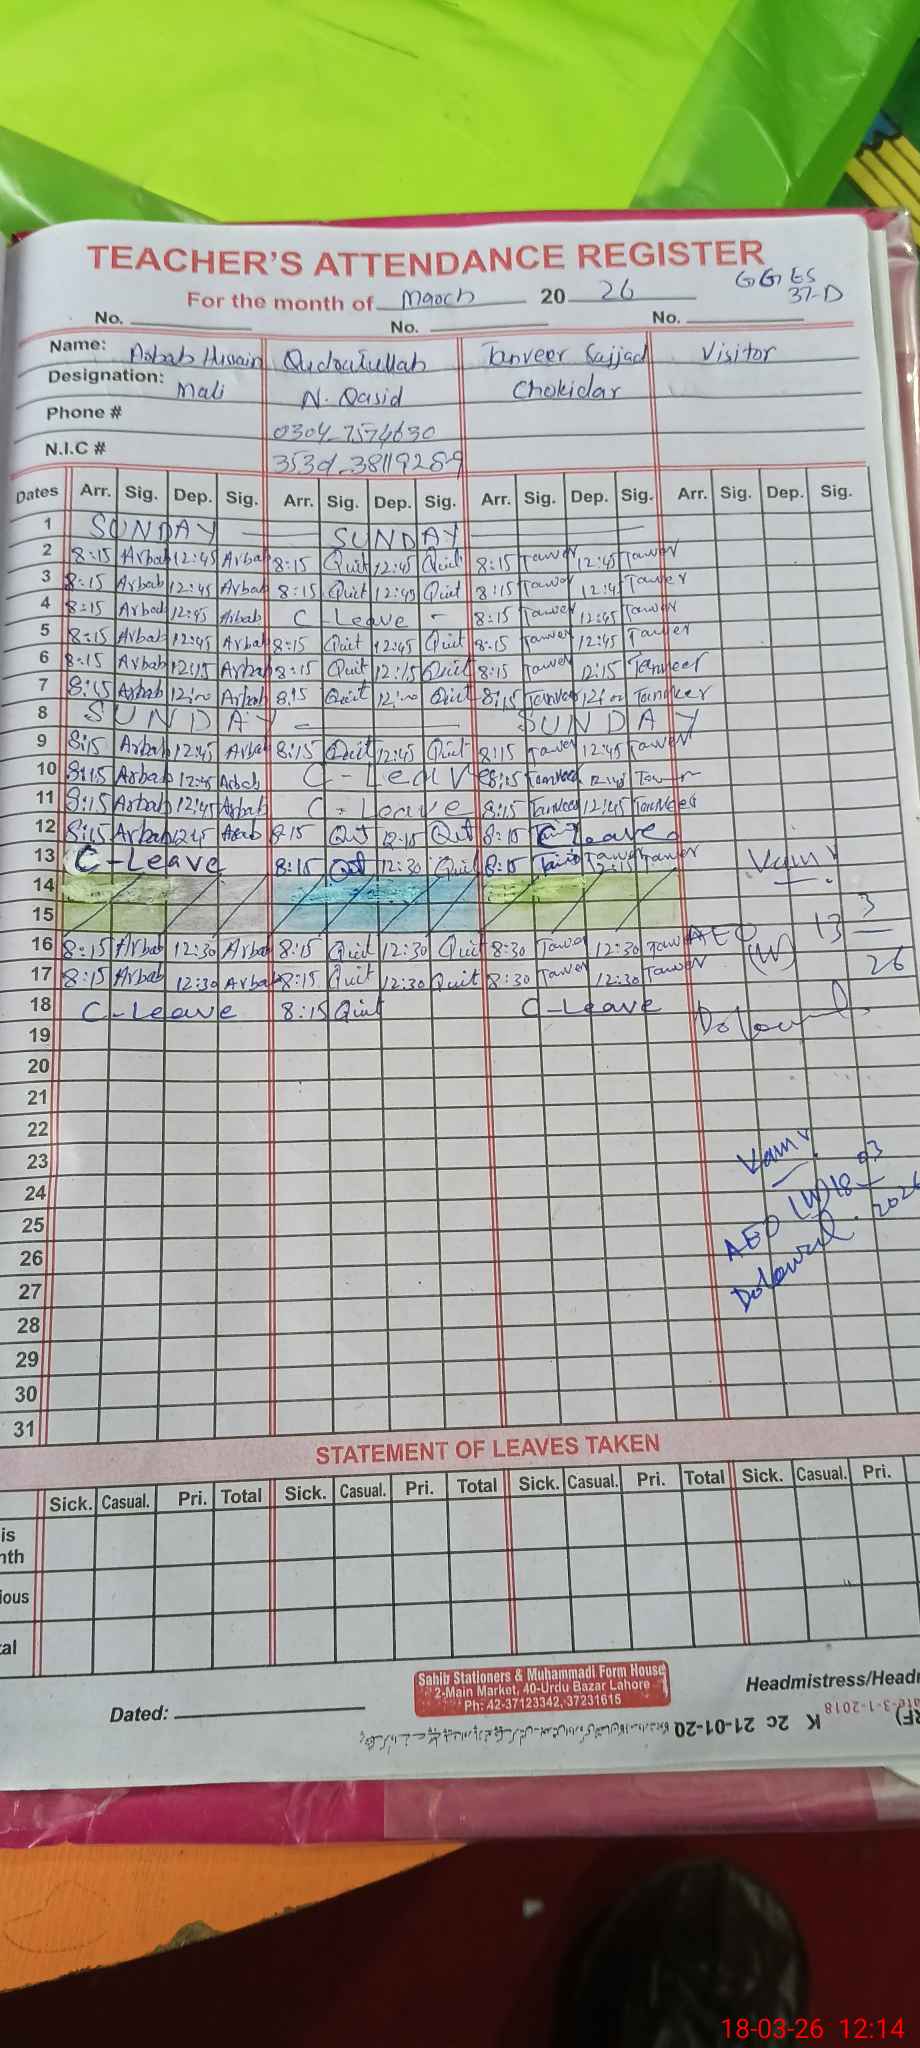 TEACHER'S ATTENDANCE REGISTER
For the month of March 20 26
GGES
37-D
No. No. No.
Name: Arbab Hussain Qudratullah Tanveer Sajjad Visitor
Designation: Mali N. Qasid Chokidar
Phone # 0304-7574630
N.I.C #
Dates Arr. Sig. Dep. Sig. Arr. Sig. Dep. Sig. Arr. Sig. Dep. Sig. Arr. Sig. Dep. Sig.
1 SUNDAY SUNDAY
2 8:15 Arbab 12:45 Arbab 8:15 Quit 12:45 Quit 8:15 12:45
3 8:15 Arbab 12:45 Arbab 8:15 Quit 12:45 Quit 8:15 12:45
4 8:15 Arbab 12:45 Arbab C Leave - 8:15 12:45
5 8:15 Arbab 12:45 Arbab 8:15 Quit 12:45 Quit 8:15 12:45
6 8:15 Arbab 12:15 Arbab 8:15 Quit 12:15 Quit 8:15 12:15 Tanveer
7 8:15 Arbab 12:00 Arbab 8:15 Quit 12:00 Quit 8:15 12:00
8 SUNDAY SUNDAY
9 8:15 Arbab 12:45 Arbab 8:15 Quit 12:45 Quit 8:15 12:45
10 8:15 Arbab 12:45 Arbab C-Leave 8:15 12:45
11 8:15 Arbab 12:45 Arbab C-Leave 8:15 Tanveer 12:45 Tanveer
12 8:15 Arbab 1245 Arbab 8:15 12:15 8:15 C-Leave
13 C-Leave 8:15 12:30 Quit 8:15 12:15
14
15
16 8:15 Arbab 12:30 Arbab 8:15 Quit 12:30 Quit 8:30 12:30 AEO (W) 13 3
17 8:15 Arbab 12:30 Arbab 8:15 Quit 12:30 Quit 8:30 12:30 26
18 C-Leave 8:15 Quit C-Leave
19
20
21
22
23
24
25
AEO (W) 18 03 2026
26
27
28
29
30
31
STATEMENT OF LEAVES TAKEN
Sick. Casual. Pri. Total Sick. Casual. Pri. Total Sick. Casual. Pri. Total Sick. Casual. Pri.
is
nth
ious
al
Dated:
Sahib Stationers & Muhammadi Form House
2-Main Market, 40-Urdu Bazar Lahore
Ph: 42-37123342, 37231615
Headmistress/Head
K 2c 21-01-20
18-03-26 12:14